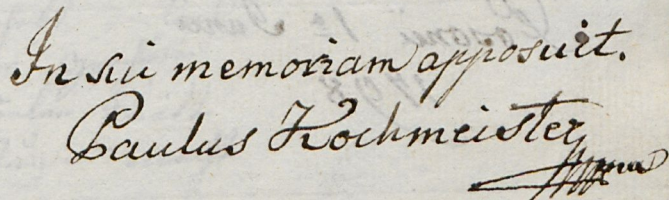 In sui memoriam apposuit.
Paulus Kochmeister